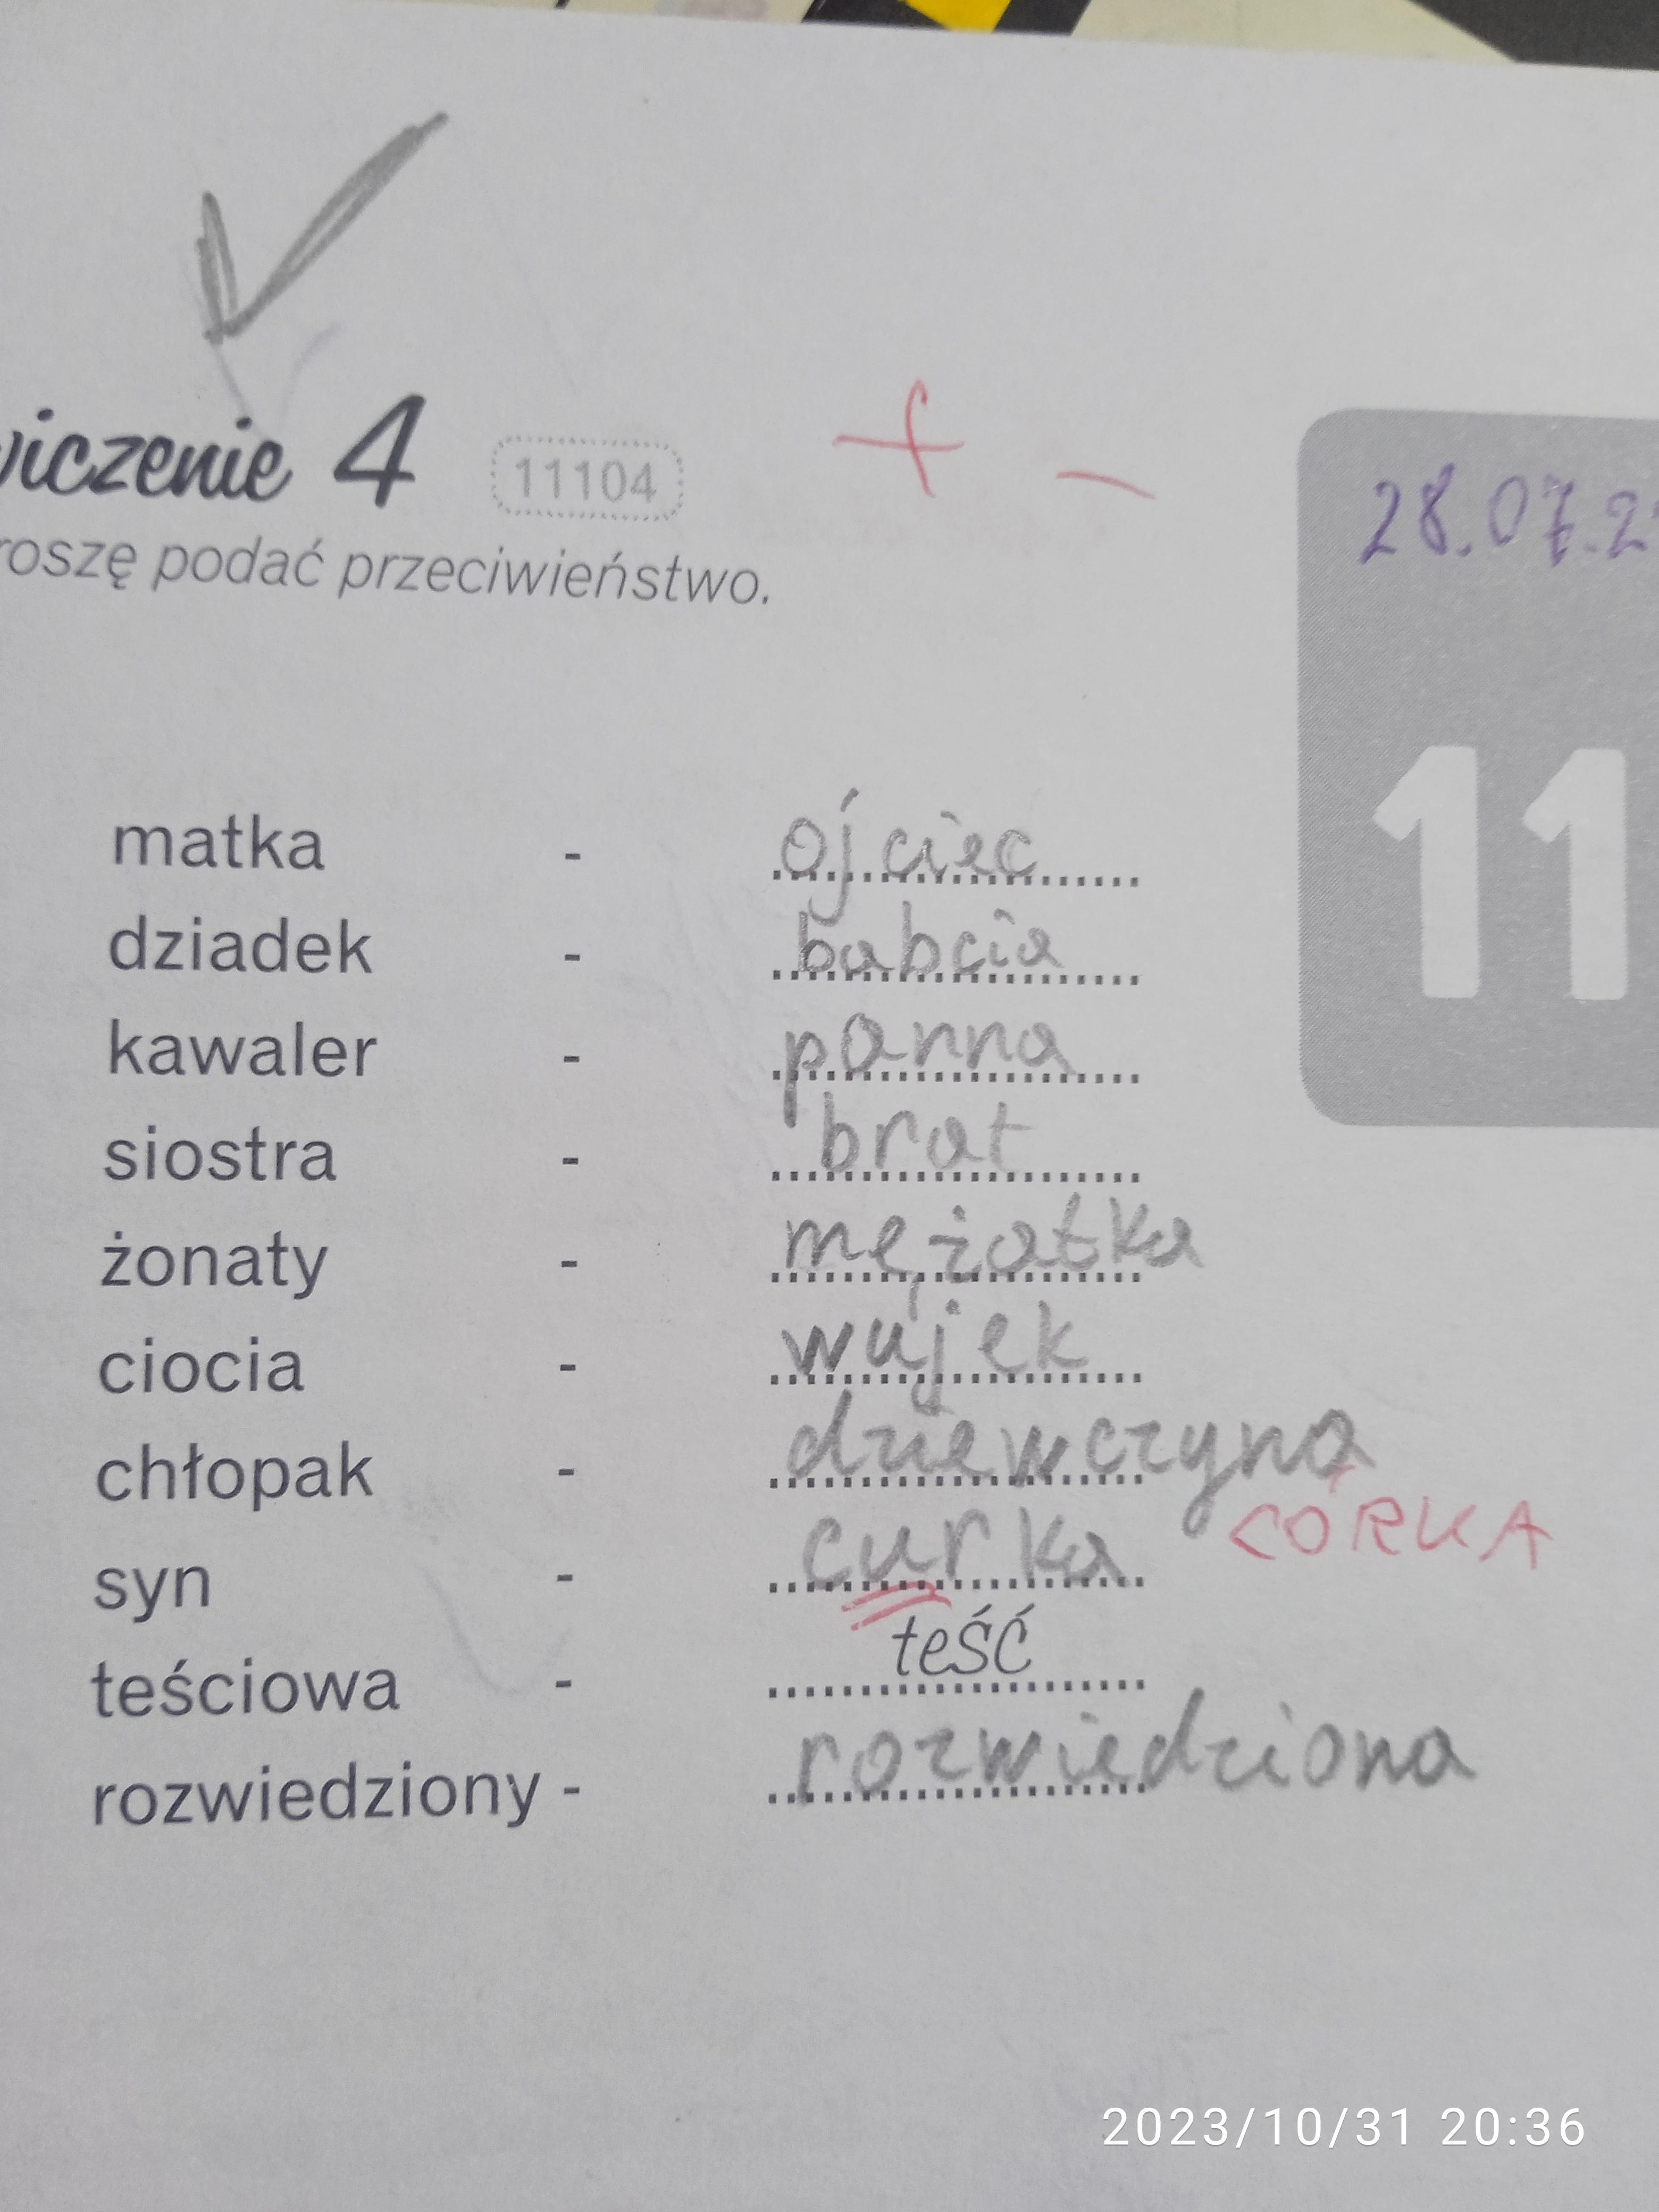 wiczenie 4 11104 + -
28.07.2
roszę podać przeciwieństwo.
11
matka - ojciec
dziadek - babcia
kawaler - panna
siostra - brat
żonaty - mężatka
ciocia - wujek
chłopak - dziewczyna
syn - curka CÓRKA
teściowa - teść
rozwiedziony - rozwiedziona
2023/10/31 20:36